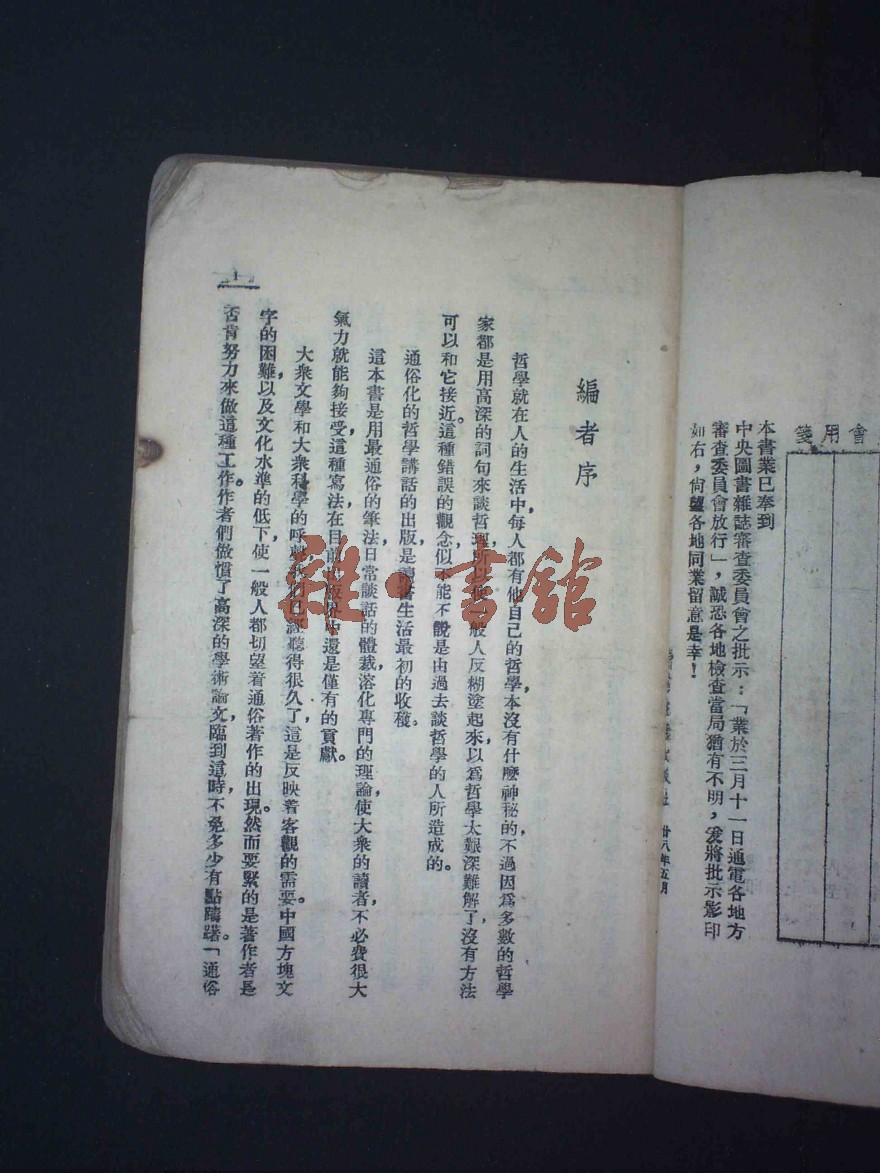 會用箋
本書業已奉到
中央圖書雜誌審查委員會之批示:「業於三月十一日通電各地方
審查委員會放行」,誠恐各地檢查當局猶有不明,爰將批示影印
如右,尙望各地同業留意是幸!
社 廿八年五月
編者序
哲學就在人的生活中,每人都有他自己的哲學,本沒有什麼神秘的,不過因爲多數的哲學
家都是用高深的詞句來談哲理,所以使一般人反糊塗起來,以爲哲學太艱深難解了,沒有方法
可以和它接近。這種錯誤的觀念,似不能不說是由過去談哲學的人所造成的。
通俗化的哲學講話的出版,是讀書生活最初的收穫。
這本書是用最通俗的筆法,日常談話的體裁,溶化專門的理論,使大衆的讀者,不必費很大
氣力就能夠接受,這種寫法,在目前出版界中還是僅有的貢獻。
大衆文學和大衆科學的呼聲,我們已經聽得很久了,這是反映着客觀的需要。中國方塊文
字的困難,以及文化水準的低下,使一般人都切望着通俗著作的出現。然而要緊的是著作者是
否肯努力來做這種工作。作者們做慣了高深的學術論文,臨到這時,不免多少有點躊躇。「通俗
1
雜·書館